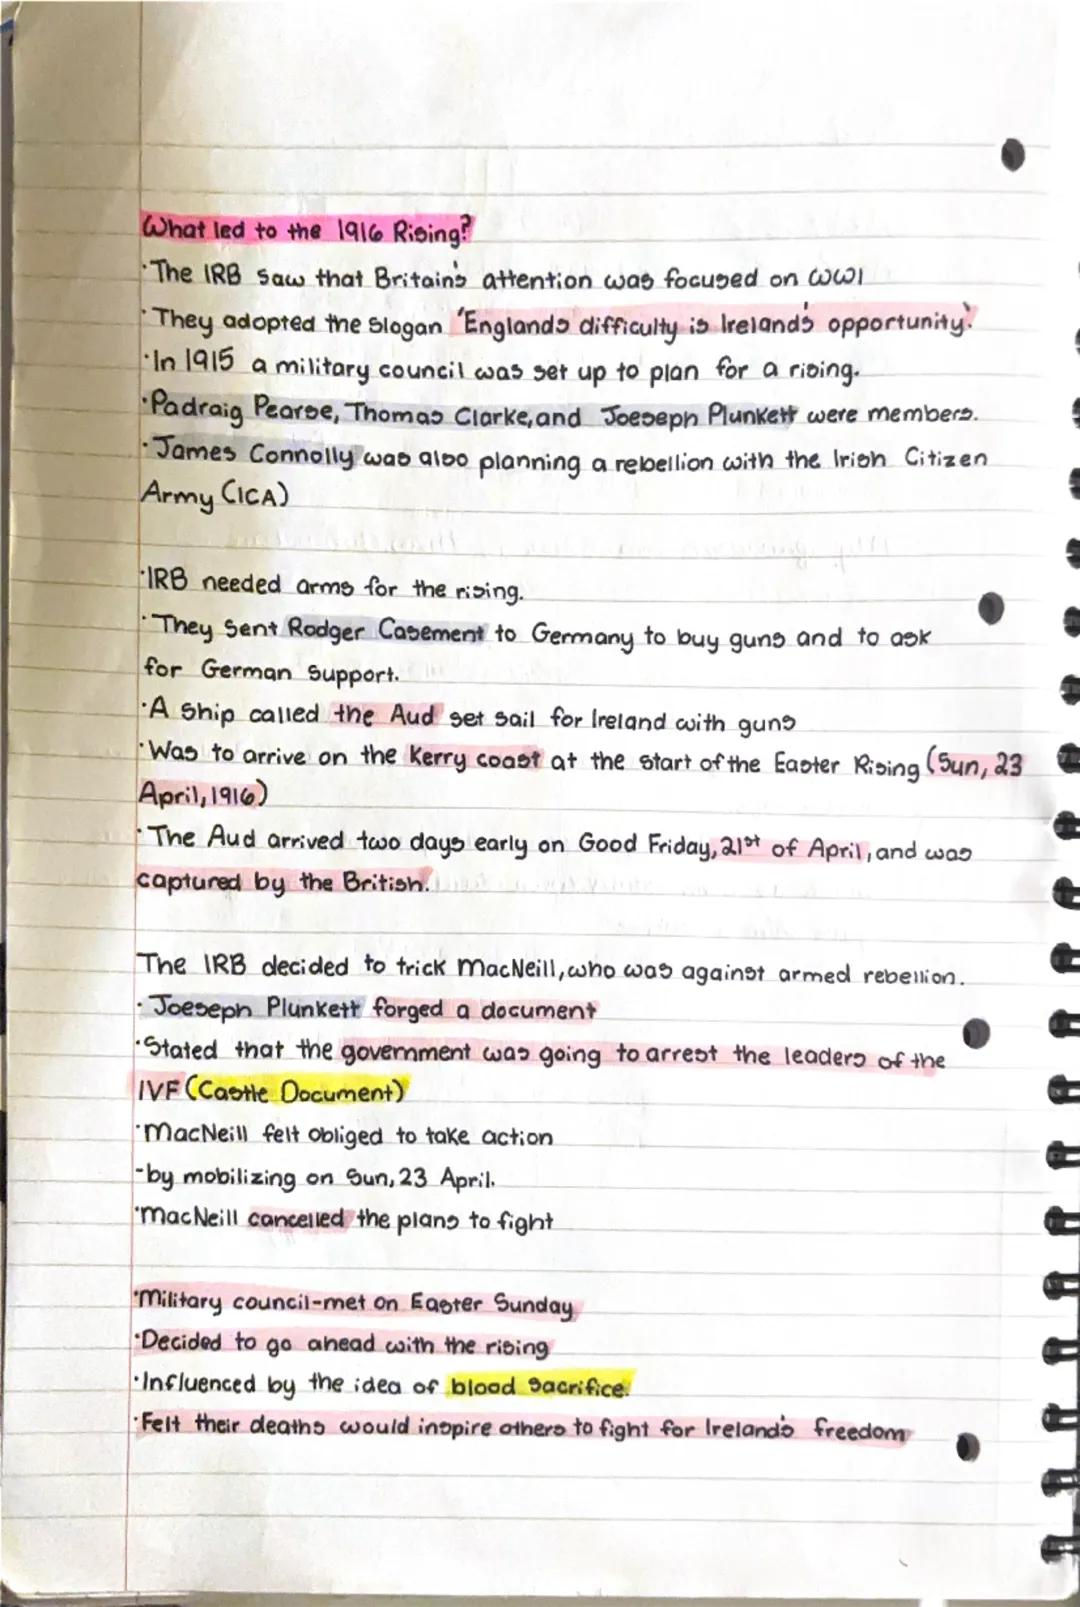 What led to the 1916 Rising?
·The IRB saw that Britain's attention was focused on WW1
·They adopted the slogan 'Englands difficulty is Ireland's opportunity'.
·In 1915 a military council was set up to plan for a rising.
·Padraig Pearse, Thomas Clarke, and Joeseph Plunkett were members.
·James Connolly was also planning a rebellion with the Irish Citizen
Army (ICA)
·IRB needed arms for the rising.
·They sent Rodger Casement to Germany to buy guns and to ask
for German support.
·A ship called the Aud set sail for Ireland with guns
·Was to arrive on the Kerry coast at the start of the Easter Rising (Sun, 23
April, 1916)
·The Aud arrived two days early on Good Friday, 21st of April, and was
captured by the British.
The IRB decided to trick MacNeill, who was against armed rebellion.
·Joeseph Plunkett forged a document
·Stated that the government was going to arrest the leaders of the
IVF (Castle Document)
·MacNeill felt obliged to take action
-by mobilizing on Sun, 23 April.
·MacNeill cancelled the plans to fight
·Military council-met on Easter Sunday
·Decided to go ahead with the rising
·Influenced by the idea of blood sacrifice.
·Felt their deaths would inspire others to fight for Ireland's freedom